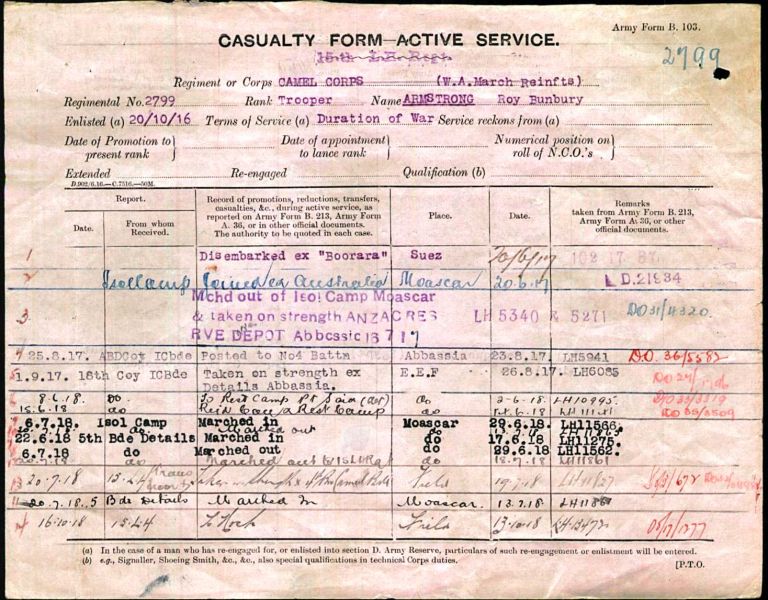 Army Form B. 103.
CASUALTY FORM—ACTIVE SERVICE.
15th L.H. Regt
2799
Regiment or Corps CAMEL CORPS (W.A.March Reinfts)
Regimental No. 2799 Rank Trooper Name ARMSTRONG Roy Bunbury
Enlisted (a) 20/10/16 Terms of Service (a) Duration of War Service reckons from (a)
Date of Promotion to present rank } Date of appointment to lance rank } Numerical position on roll of N.C.O.'s }
Extended Re-engaged Qualification (b)
D.902/6.16.—C.7516.—50M.
Report. Record of promotions, reductions, transfers, casualties, &c., during active service, as reported on Army Form B. 213, Army Form A. 36, or in other official documents. The authority to be quoted in each case. Place. Date. Remarks taken from Army Form B. 213, Army Form A. 36, or other official documents.
Date. From whom Received.
1 Disembarked ex "Boorara" Suez 20/6/17 102 17 87
2 Isol Camp Joined ex Australia Moascar 20.6.17 LD.21934
3 Mchd out of Isol Camp Moascar
& taken on strength ANZACRES LH 5340 & 5271 DO31/4320
RVE DEPOT Abbcssic 16 7 17
4 25.8.17. ABDCoy ICBde Posted to No4 Battn Abbassia 23.8.17. LH5941 D.O. 36/5582
5 1.9.17. 16th Coy ICBde Taken on strength ex Details Abbassia. E.E.F 26.8.17. LH6085
6 8.6.18. do To Rest Camp Pt Said do 2-6-18 LH10995
15.6.18 do Rest Camp do
7 6.7.18. Isol Camp Marched in Moascar 29.6.18. LH11566.
Marched out do
22.6.18 5th Bde Details Marched in do 17.6.18 LH11275.
6.7.18 do Marched out do 29.6.18 LH11562.
20.7.18 do Marched out do 18.7.18 LH11861
13 20.7.18 15.LH Field 19.7.18
20.7.18. 5 Bde Details Marched In Moascar. 13.7.18
16.10.18 15.LH To Hosp Field 13.10.18
(a) In the case of a man who has re-engaged for, or enlisted into section D. Army Reserve, particulars of such re-engagement or enlistment will be entered.
(b) e.g., Signaller, Shoeing Smith, &c., &c., also special qualifications in technical Corps duties. [P.T.O.